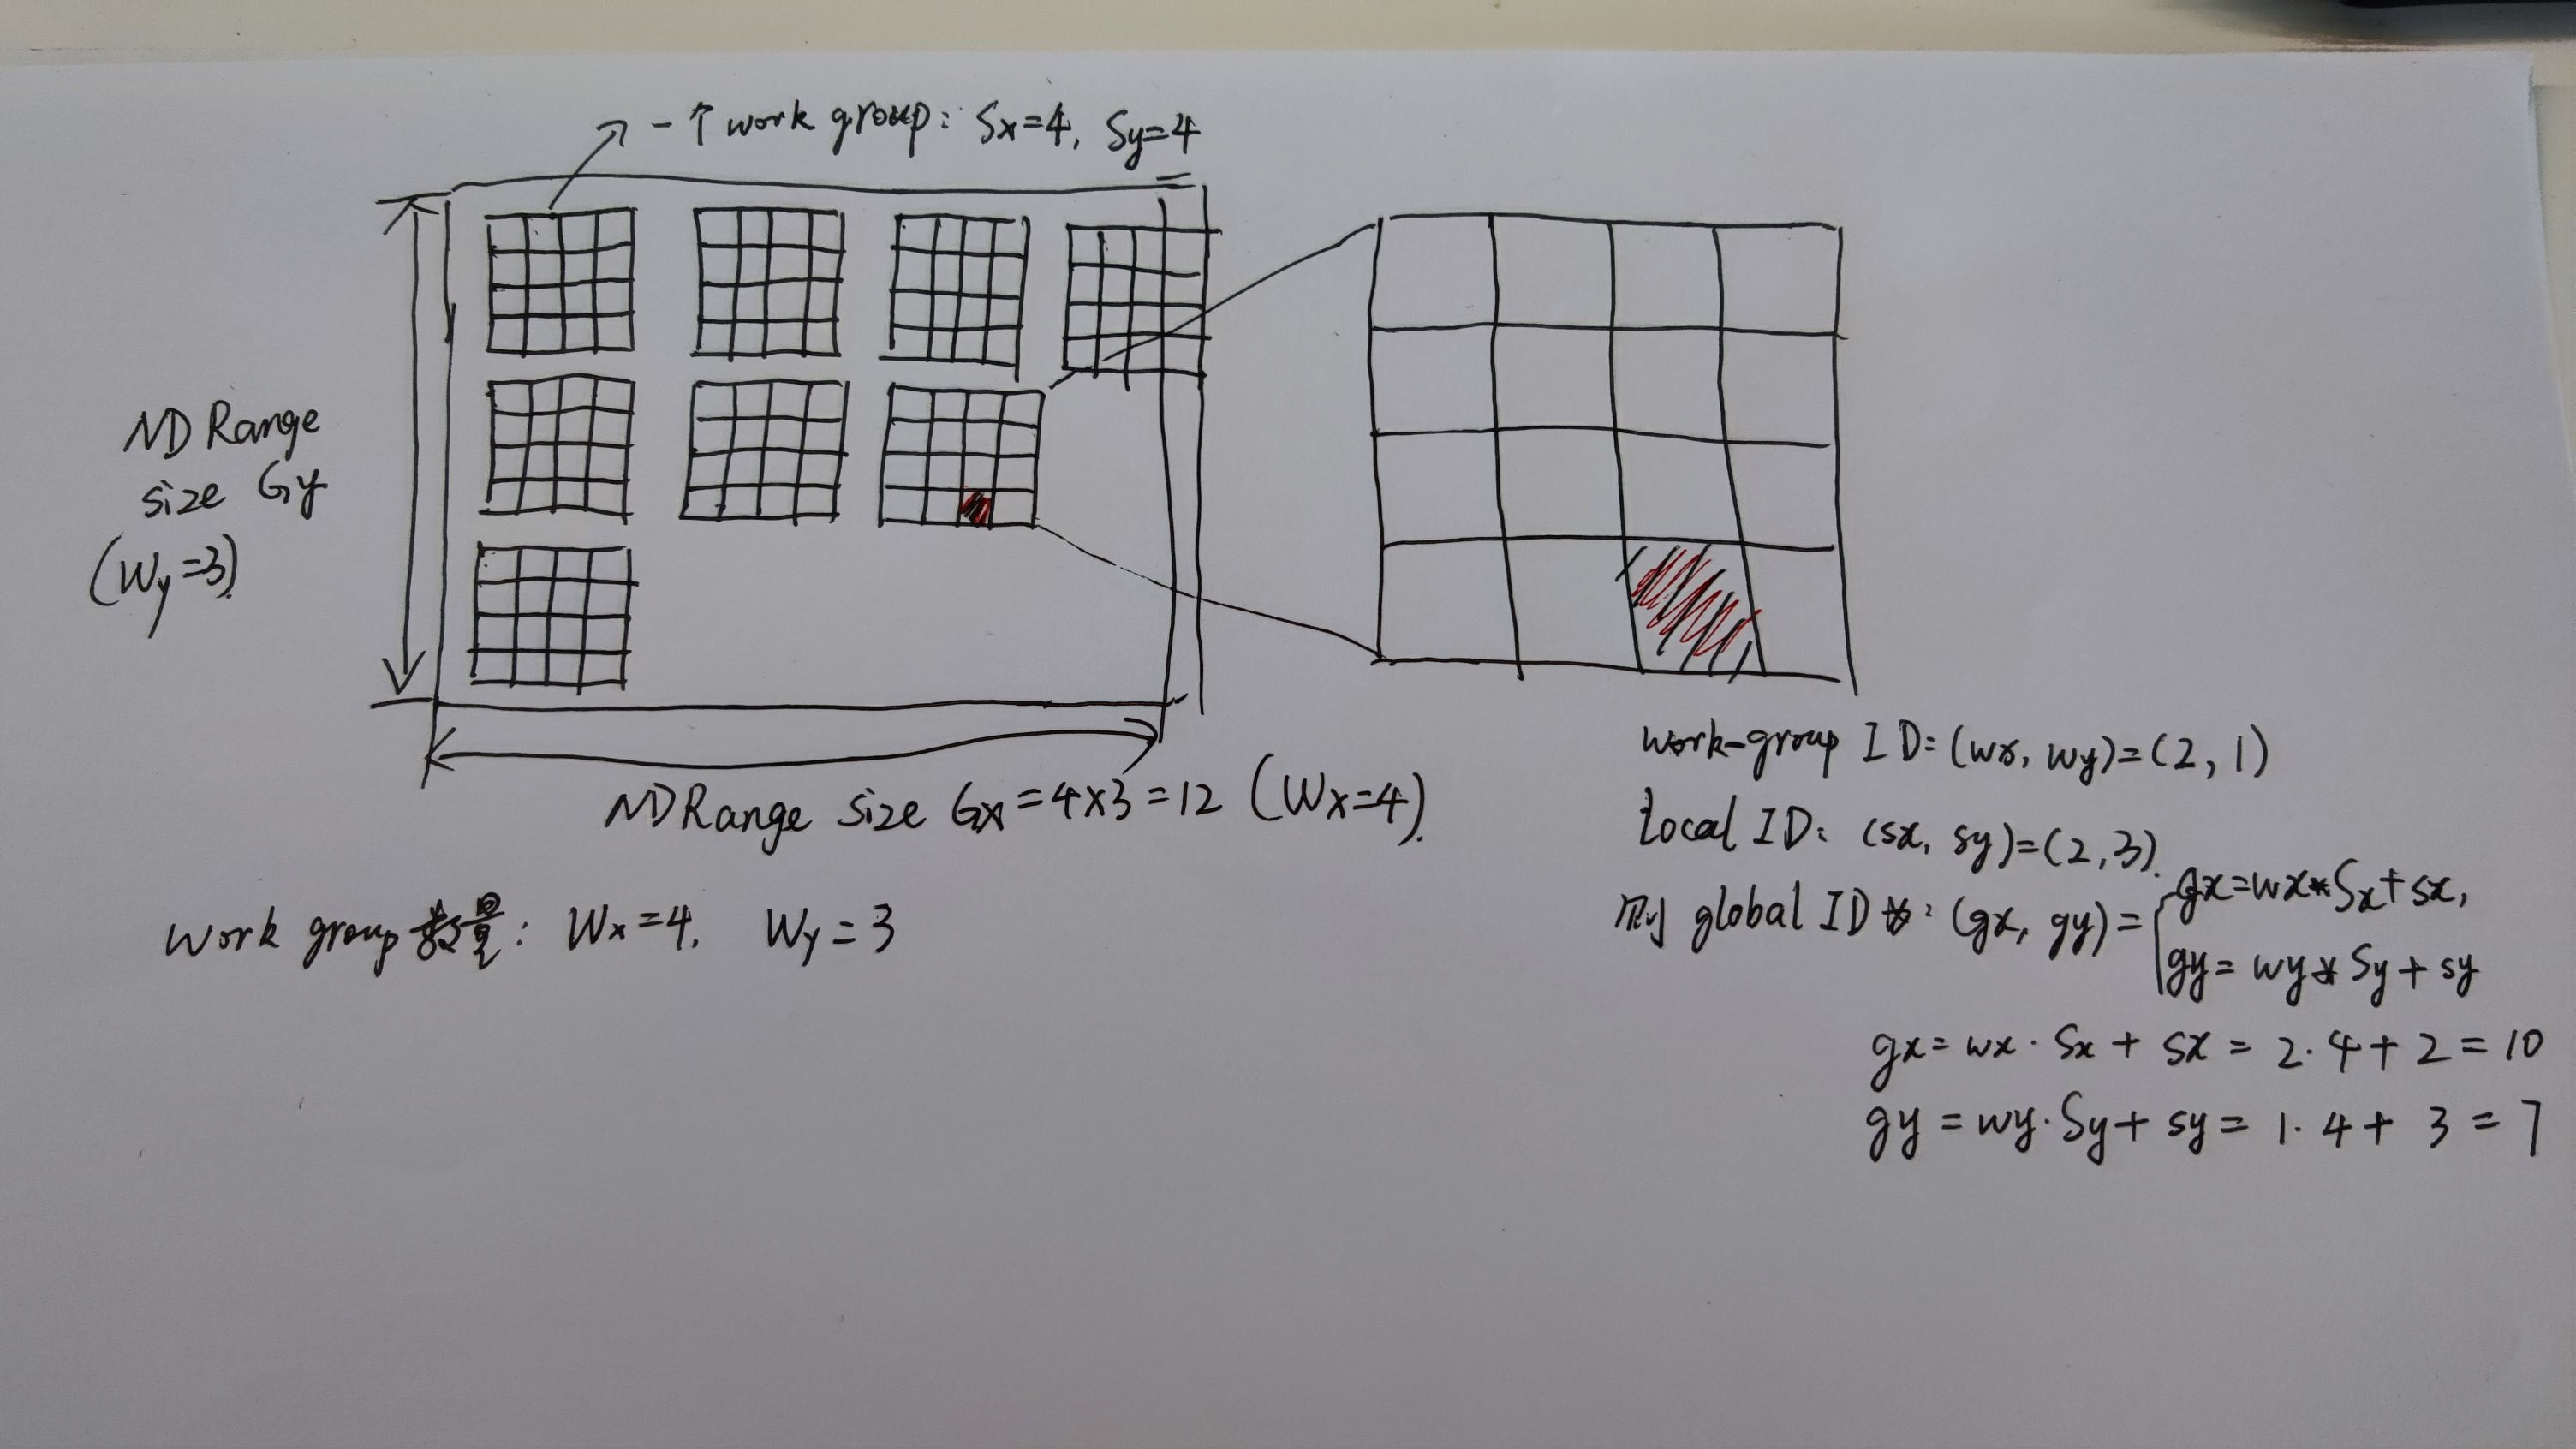 一个 work group: Sx=4, Sy=4
ND Range
size Gy
(Wy=3)
ND Range size Gx=4x3=12 (Wx=4)
work group 数量: Wx=4, Wy=3
work-group ID: (wx, wy)=(2, 1)
Local ID: (sx, sy)=(2,3).
则 global ID为: (gx, gy)= { gx=wx*Sx+sx,
gy=wy*Sy+sy
gx=wx·Sx+sx=2·4+2=10
gy=wy·Sy+sy=1·4+3=7